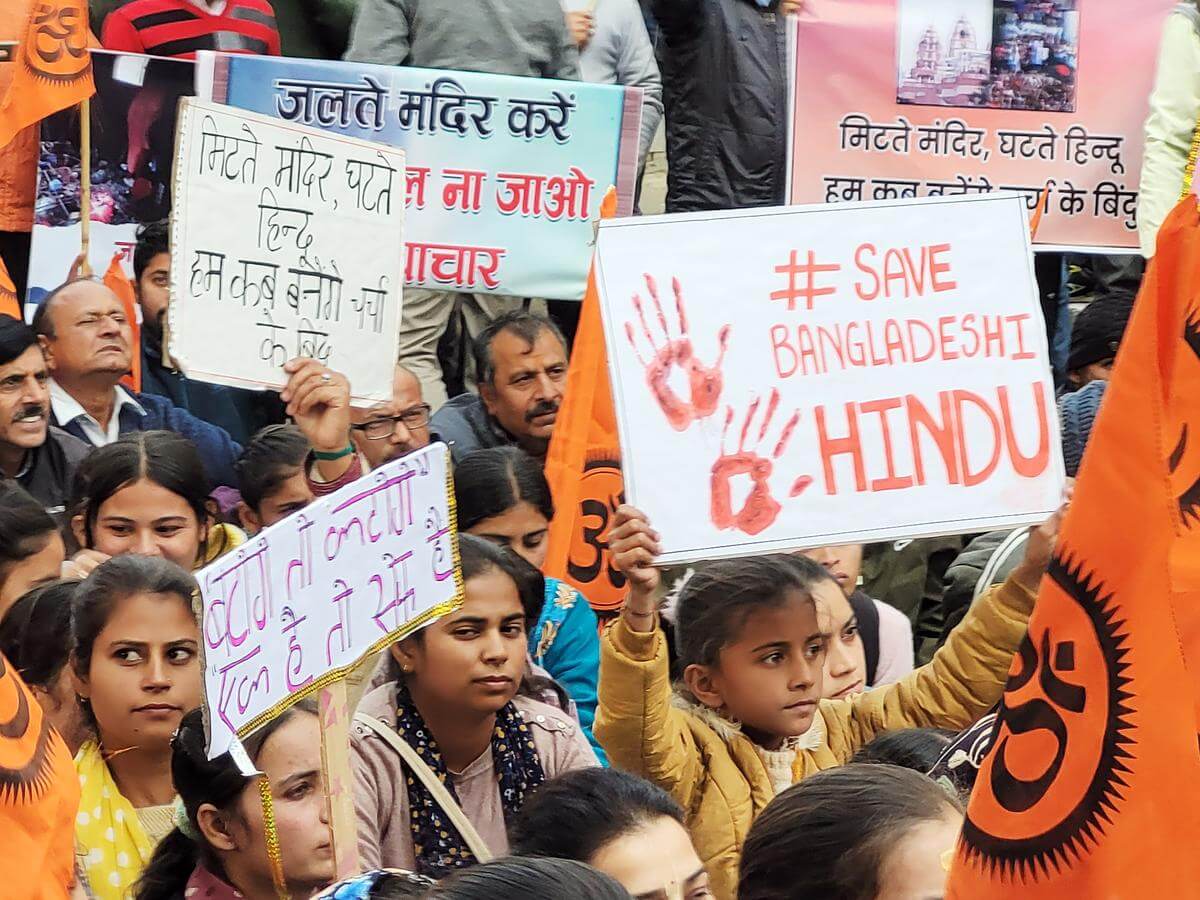 जलते मंदिर करें
ना जाओ
मिटते मंदिर, घटते
हिन्दू
हम कब बनेंगे चर्चा
के बिंदु
मिटते मंदिर, घटते हिन्दू
हम कब बनेंगे चर्चा के बिंदु
# SAVE
BANGLADESHI
HINDU
बटोगे तो कटोगे"
"एक है तो सेफ है